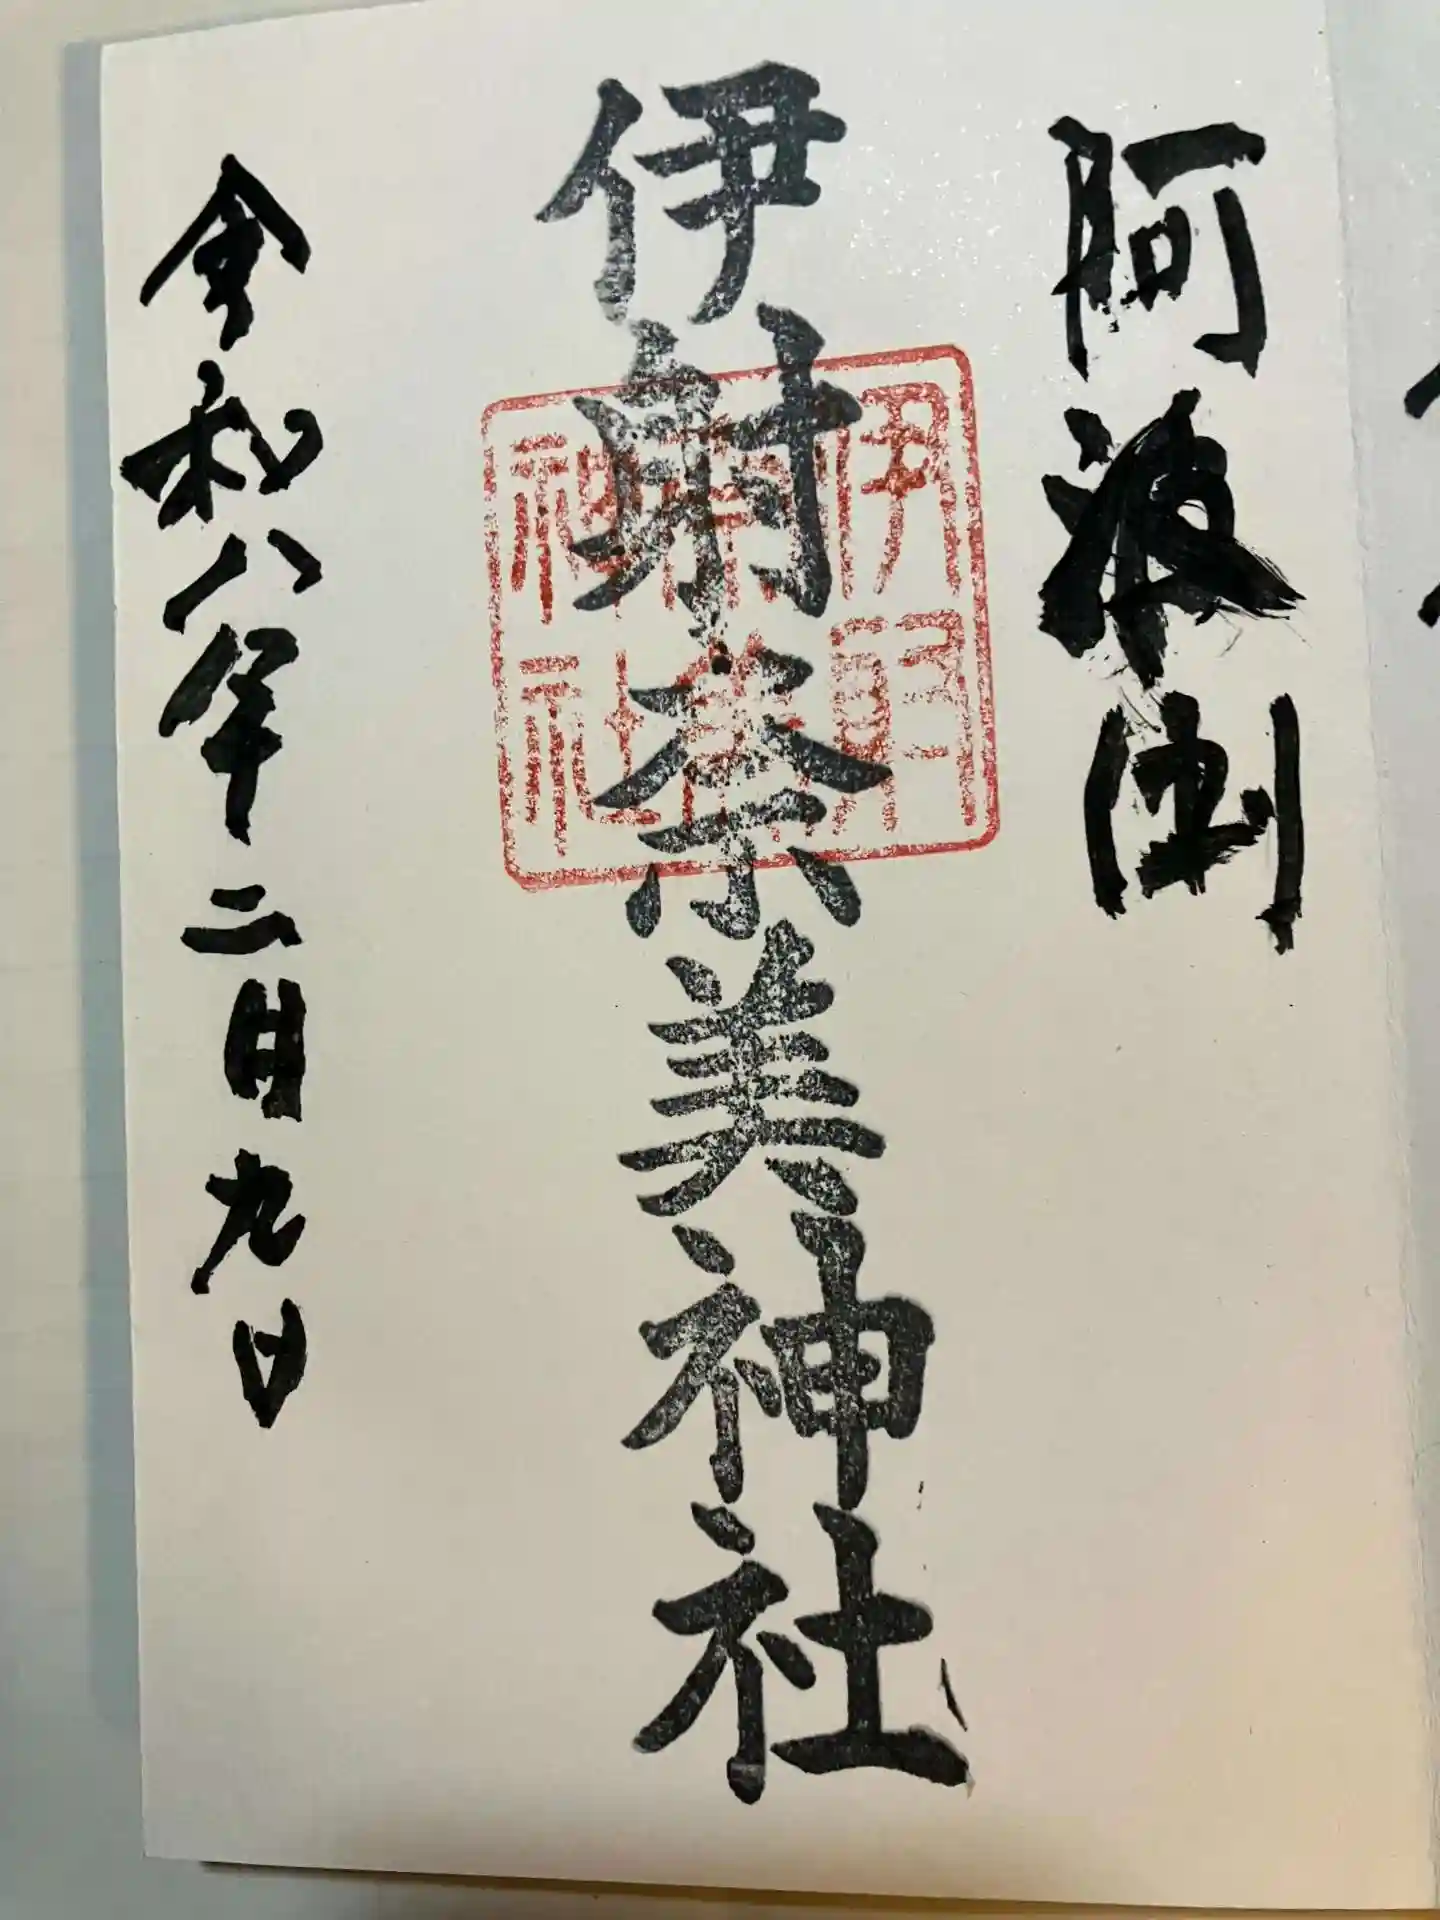 阿波国
伊射奈美神社
伊射
奈美
神社
令和八年二月九日